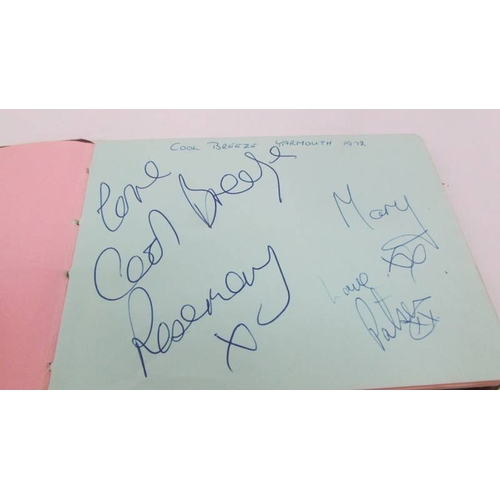 COOL BREEZE YARMOUTH 1972
Love
Cool Breeze
Rosemary
x
Mary
xx
Love
Patsy
xx